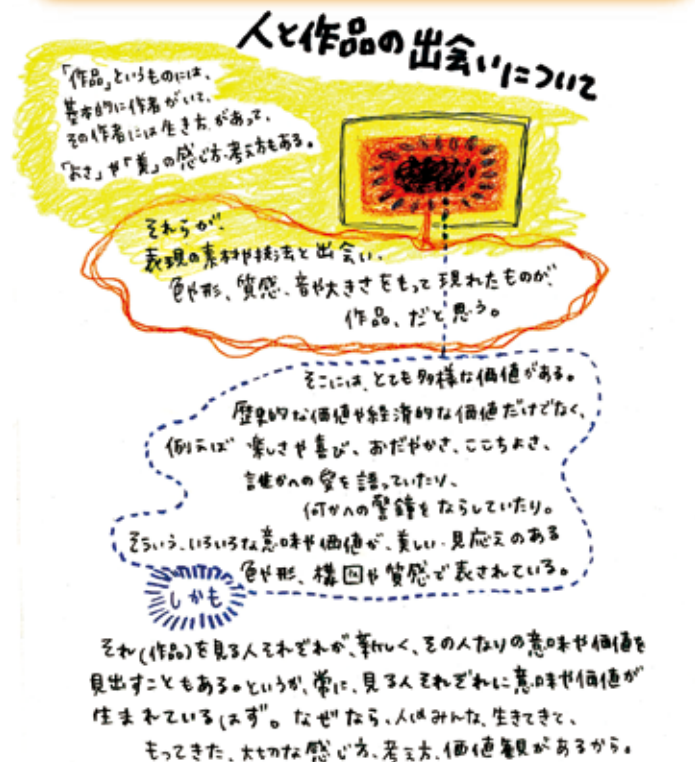 人と作品の出会いについて
「作品」というものには、
基本的に作者がいて、
その作者には生き方があって、
「よさ」や「美」の感じ方、考え方もある。
それらが、
表現の素材や技法と出会い、
色や形、質感、音や大きさをもって現れたものが、
作品、だと思う。
そこには、とても多様な価値がある。
歴史的な価値や経済的な価値だけでなく、
例えば 楽しさや喜び、おだやかさ、ここちよさ、
誰かへの愛を語っていたり、
何かへの警鐘をならしていたり。
そういう、いろいろな意味や価値が、美しい・見応えのある
色や形、構図や質感で表されている。
しかも
それ(作品)を見る人それぞれが、新しく、その人なりの意味や価値を
見出すこともある。というか、常に、見る人それぞれに意味や価値が
生まれているはず。なぜなら、人はみんな、生きてきて、
もってきた、大切な感じ方、考え方、価値観があるから。